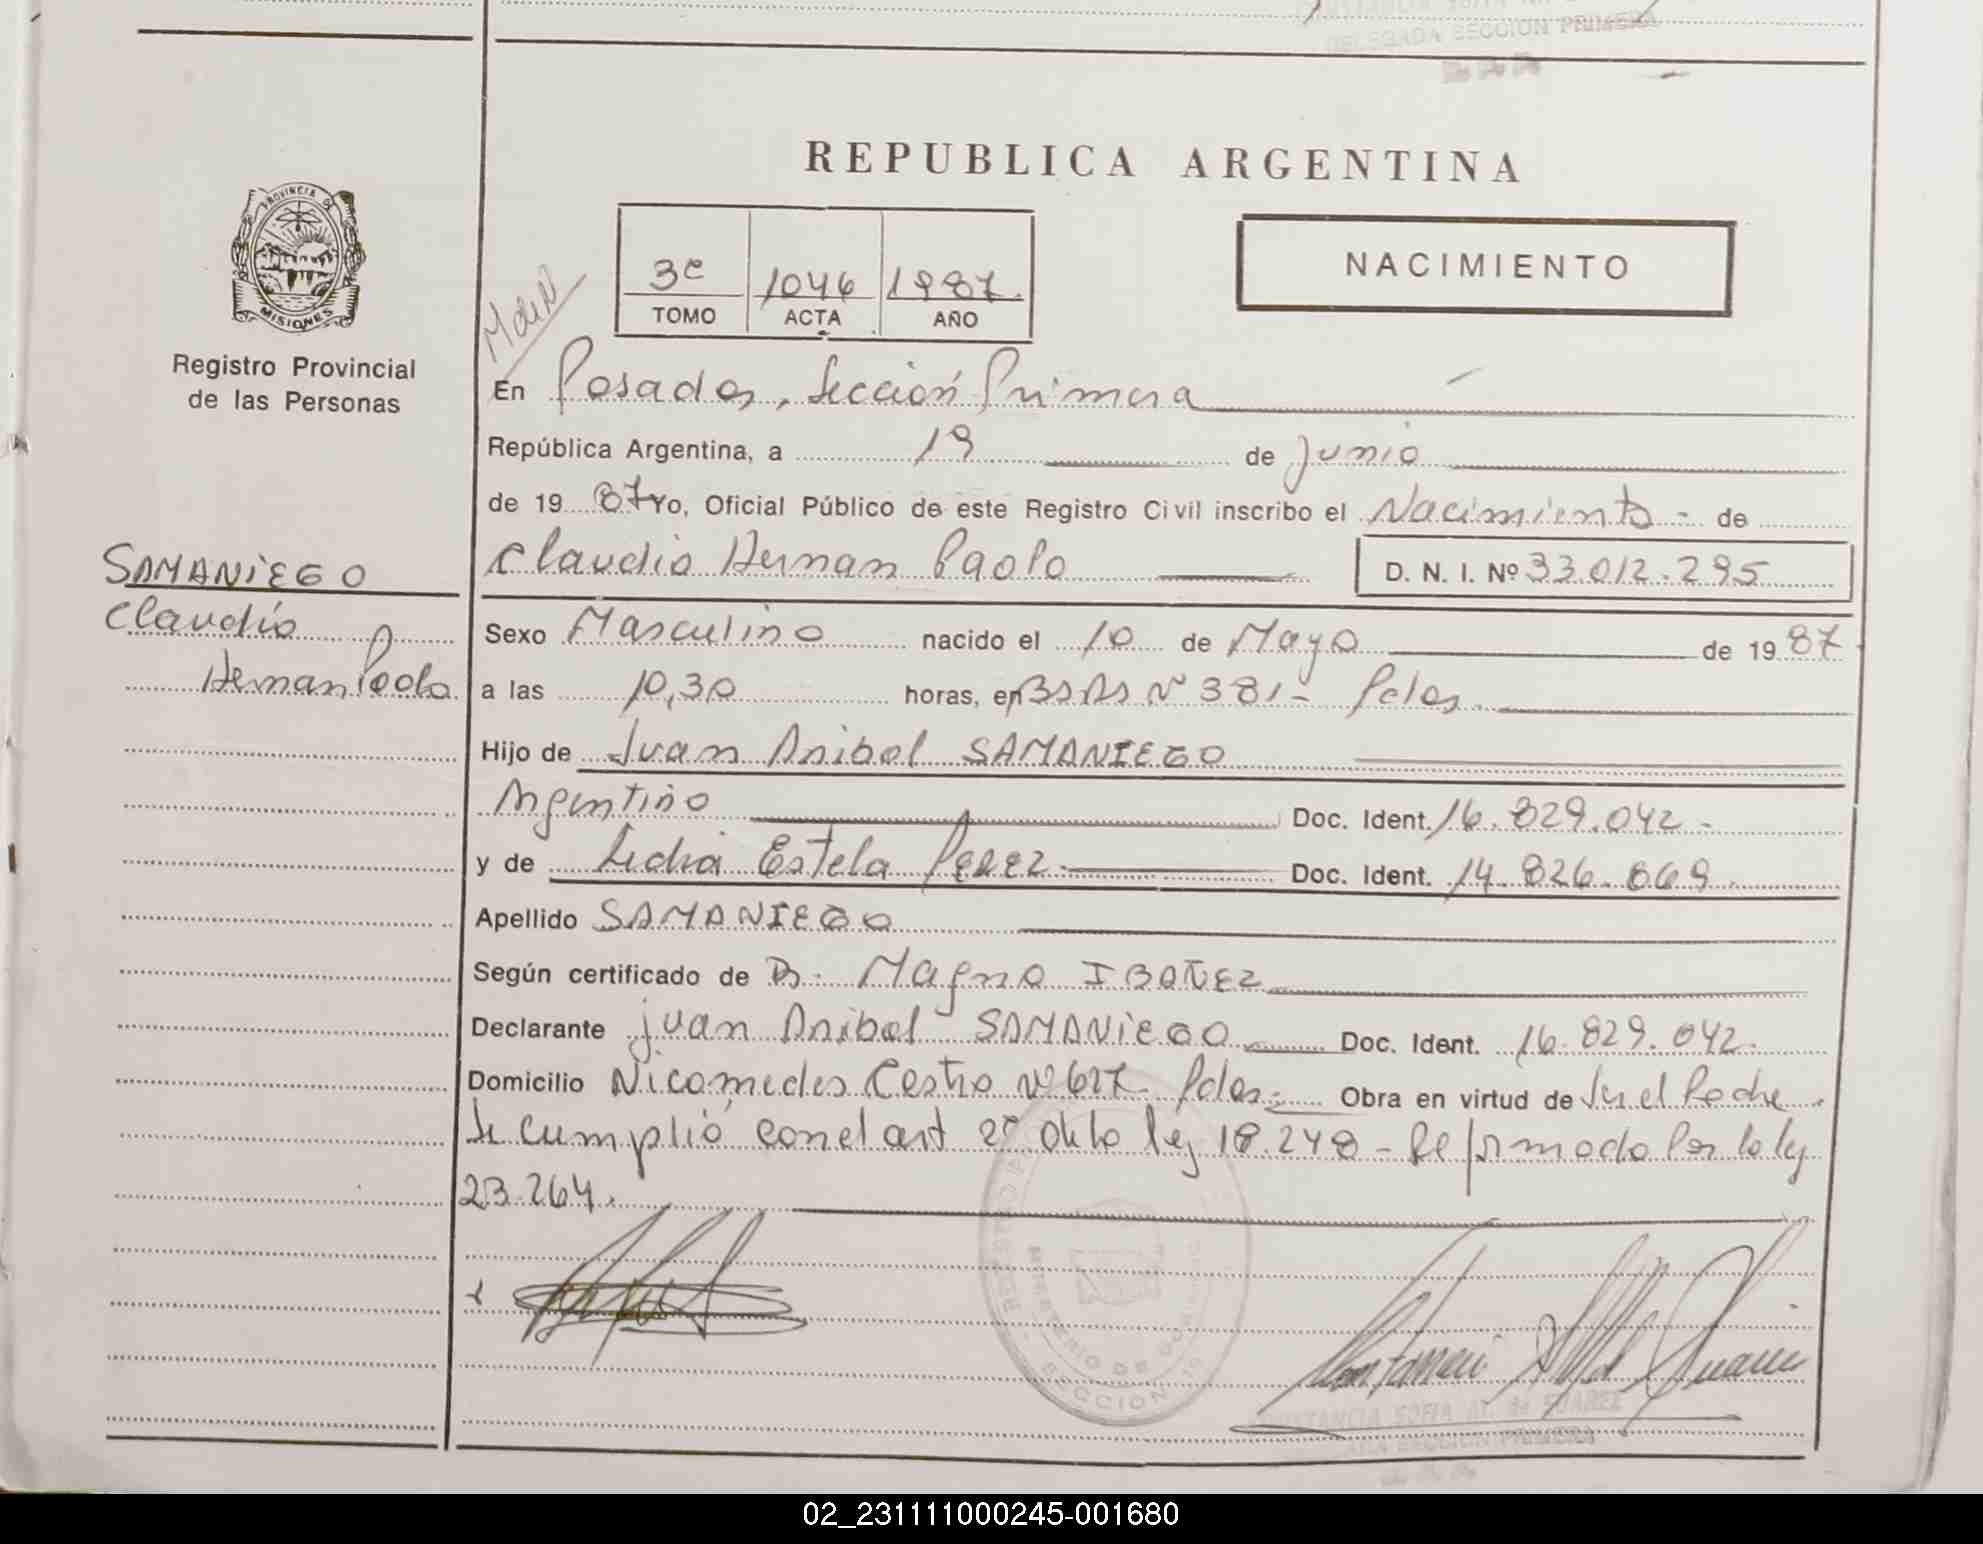 DELEGADA SECCION PRIMERA
REPUBLICA ARGENTINA
PROVINCIA DE
MISIONES
Registro Provincial
de las Personas
3º 1046 1987.
TOMO ACTA AÑO
NACIMIENTO
En Posadas, Sección Primera
República Argentina, a 19 de Junio
de 19 87 Yo, Oficial Público de este Registro Civil inscribo el Nacimiento - de
Claudio Hernan Paolo D. N. I. Nº 33.012.295
SAMANIEGO
Claudio
Hernan Paolo
Sexo Masculino nacido el 10 de Mayo de 19 87
a las 10,30 horas, en BsAs Nº 381 - Pdas.
Hijo de Juan Anibal SAMANIEGO
Argentino Doc. Ident. 16.829.042 -
y de Lidia Estela PEREZ - Doc. Ident. 14.826.069.
Apellido SAMANIEGO
Según certificado de Dr. Magno IBAÑEZ
Declarante Juan Anibal SAMANIEGO Doc. Ident. 16.829.042.
Domicilio Nicomedes Castro Nº 627 Pdas - Obra en virtud de Ser el Padre.
Se cumplió con el art 2º de la ley 18.248 - Reformado Por la ley
23.264.
MINISTERIO DE GOBIERNO
SECCION 1ª
CONSTANCIA SOFIA M. de SUAREZ
DELEGADA SECCION PRIMERA
02_231111000245-001680